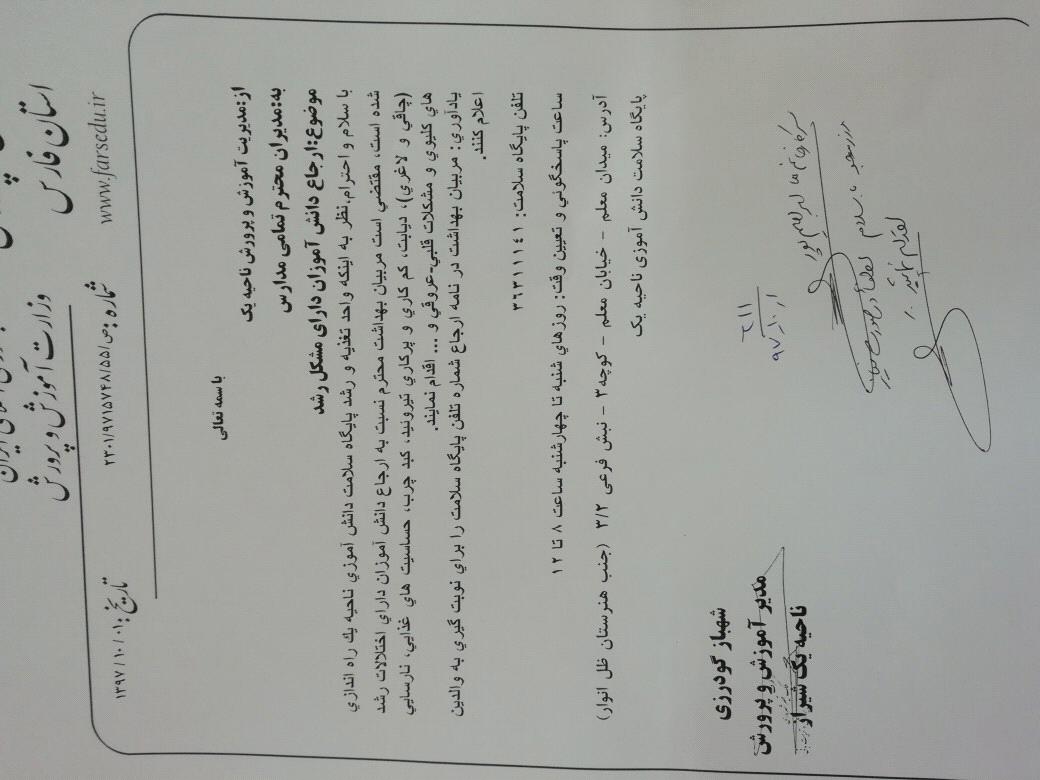 استان فارس
وزارت آموزش و پرورش
www.farsedu.ir
شماره: ص/۲۳۰۱/۹۷۱۵۷۴۸/۵۵
تاریخ: ۱۳۹۷/۱۰/۰۱
باسمه تعالی
از:مدیریت آموزش و پرورش ناحیه یک
به:مدیران محترم تمامی مدارس
موضوع:ارجاع دانش آموزان دارای مشکل رشد
با سلام و احترام.نظر به اینکه واحد تغذیه و رشد پایگاه سلامت دانش آموزي ناحیه یك راه اندازي
شده است، مقتضي است مربیان بهداشت محترم نسبت به ارجاع دانش آموزان داراي اختلالات رشد
(چاقي و لاغري)، دیابت، کم کاري و پرکاري تیرویید، کبد چرب، حساسیت هاي غذایي، نارسایي
هاي کلیوي و مشکلات قلبي-عروقي و ... اقدام نمایند.
یادآوري: مربیان بهداشت در نامه ارجاع شماره تلفن پایگاه سلامت را براي نوبت گیري به والدین
اعلام کنند.
تلفن پایگاه سلامت: ۳۶۳۱۱۱۴۱
ساعت پاسخگوئي و تعیین وقت: روزهاي شنبه تا چهارشنبه ساعت ۸ تا ۱۲
آدرس: میدان معلم - خیابان معلم - کوچه ۳ - نبش فرعی ۳/۲ (جنب هنرستان ظل انوار)
پایگاه سلامت دانش آموزی ناحیه یک
۲۱۱
۹۷/۱۰/۱
با سلام
لطفاً
شهباز گودرزی
مدیر آموزش و پرورش
ناحیه یک شیراز